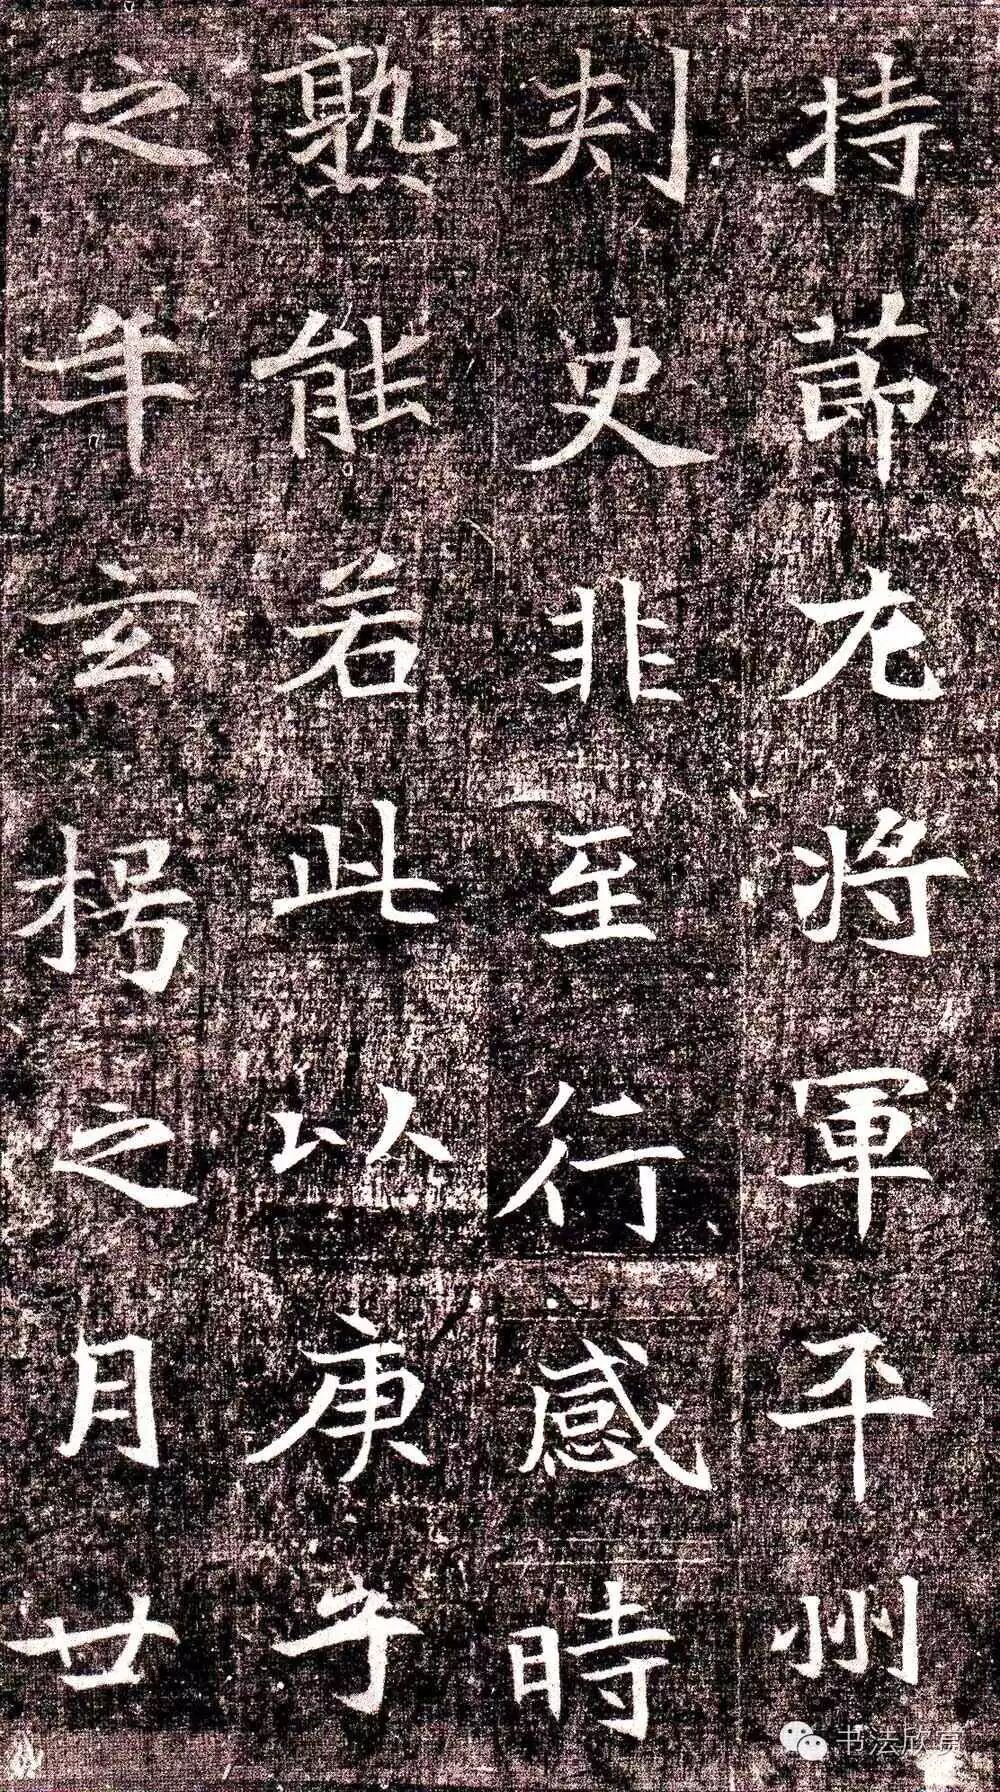 持節尤將軍平州
刾史非至行感時
熟能若此以庚午
之年玄枵之月廿
书法欣赏